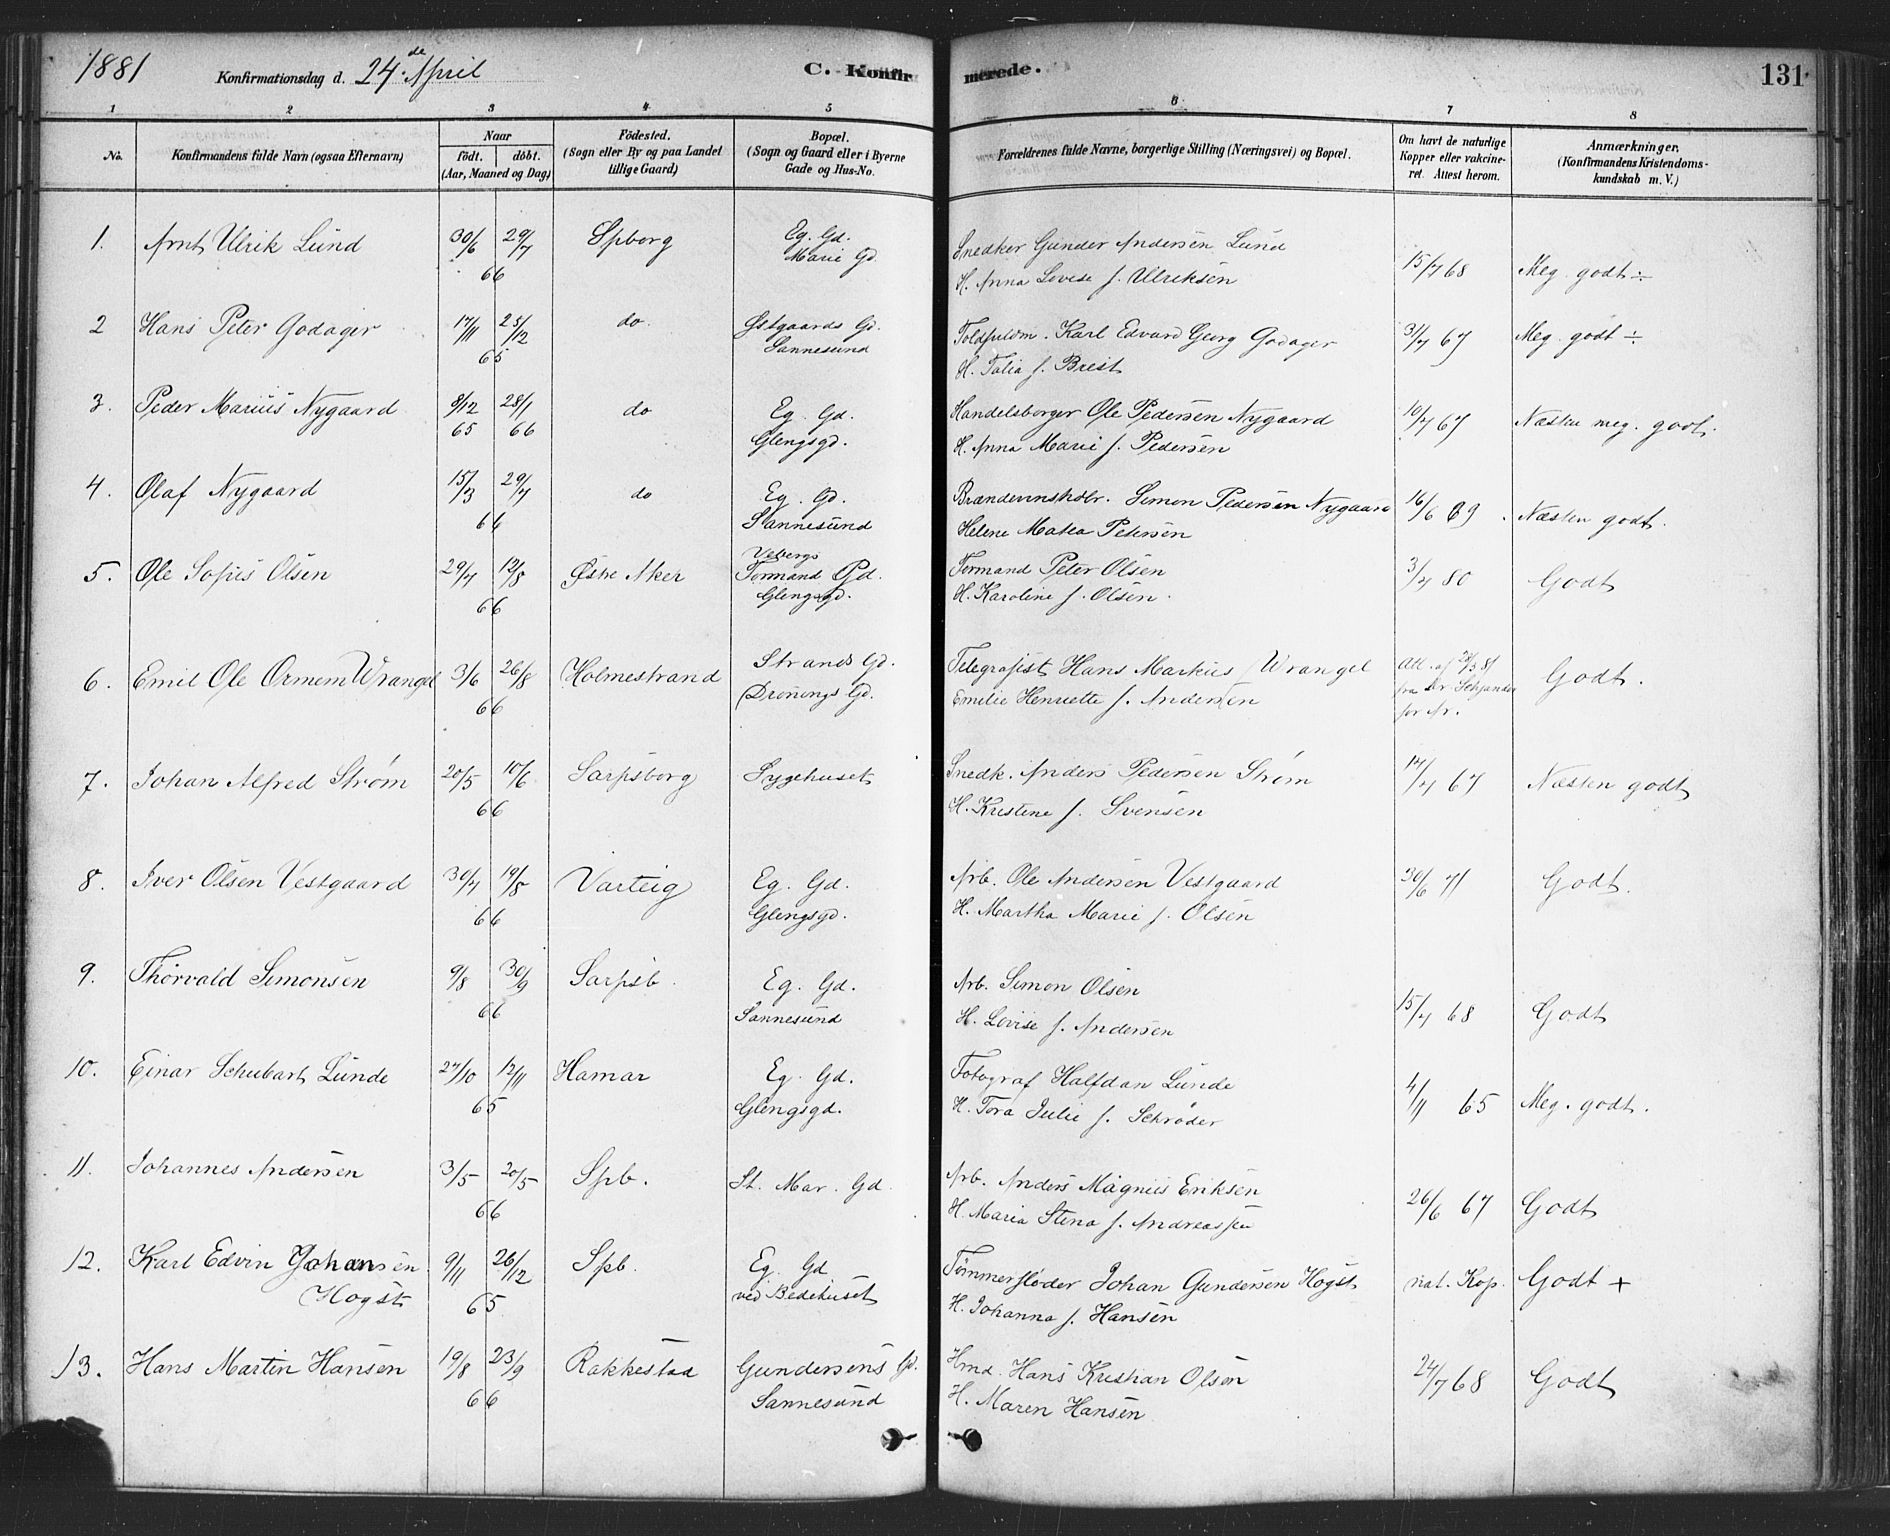 1881 Konfirmationsdag d. 24de April C. Konfir merede. 131
1 2 3 4 5 6 7 8
No. Konfirmandens fulde Navn (ogsaa Efternavn) Naar født. døbt. (Aar, Maaned og Dag) Födested. (Sogn eller By og paa Landet tillige Gaard) Bopæl. (Sogn og Gaard eller i Byerne Gade og Hus-No. Foræeldrenes fulde Navne, borgerlige Stilling (Næringsvei) og Bopæl. Om havt de naturlige Kopper eller vakcineret. Attest herom. Anmærkninger. (Konfirmandens Kristendomskundskab m. V.)
1. Arnt Ulrik Lund 30/6 29/7 Spborg Eg. Gd. Snedker Gunder Andersen Lund
66 Marie Gd. H. Anna Lovise f. Ulriksen 15/7 68 Meg. godt ÷
2 Hans Peter Godager 17/11 25/12 do. Østgaards Gd. Karl Edvard Georg Godager 31/7 67 Meg. godt ÷
65 Sannesund H. Talia f. Breit
3. Peder Marius Nygaard 8/12 28/1 do Eg. Gd. Handelsborger Ole Pedersen Nygaard 10/7 67 Næsten meg. godt.
65 66 Glengsgd. H. Anna Marie f. Pedersen
4. Olaf Nygaard 15/3 29/7 do Eg. Gd. Simon Pedersen Nygaard 16/6 69 Næsten godt.
66 Sannesund Helene Matea Petersen
5. Ole Sofus Olsen 29/7 12/8 Østre Aker Vebergs Formand Gd. Formand Peter Olsen 3/7 80 Godt
66 Glengsgd. H. Karoline f. Olsen.
6. Emil Ole Ormem Wrangel 3/6 26/8 Holmestrand Strands Gd. Telegrafist Hans Markus Wrangel Att. af 28/3 81 fra Dr Schjander for Ar. Godt.
66 Dronnings Gd. Emilie Henriette f. Andersen
7. Johan Alfred Strøm 20/5 10/6 Sarpsborg Sygehuset Snedk. Anders Pedersen Strøm 14/7 67 Næsten godt
66 H. Kristine f. Svensen
8. Iver Olsen Vestgaard 30/7 19/8 Varteig Eg. Gd. Arb. Ole Andersen Vestgaard 30/6 71 Godt.
66 Glengsgd. H. Martha Marie f. Olsen
9. Thorvald Simonsen 9/8 30/9 Sarpsb. Eg. Gd. Arb. Simon Olsen
66 Sannesund H. Lovise f. Andersen 15/7 68 Godt
10. Einar Schubart Lunde 27/10 12/11 Hamar Eg. Gd. Fotograf Halfdan Lunde
65 Glengsgd. H. Tora Julie f. Schrøder 4/11 65 Meg. godt.
11. Johannes Andersen 3/5 20/5 Spb. St. Mar. Gd. Arb. Anders Magnus Eriksen
66 H. Maria Stena f. Andreassen 26/6 67 Godt
12. Karl Edvin Johansen 9/11 26/12 Spb. Eg. Gd Tømmerfløder Johan Gundersen Høgst nat. Kop. Godt +
Høgst 65 ved Bedehuset H. Johanna f. Hansen
13. Hans Martin Hansen 19/8 23/9 Rakkestad Gundersens Gd. Hmd. Hans Kristian Olsen 24/7 68 Godt
66 Sannesund H. Maren Hansen